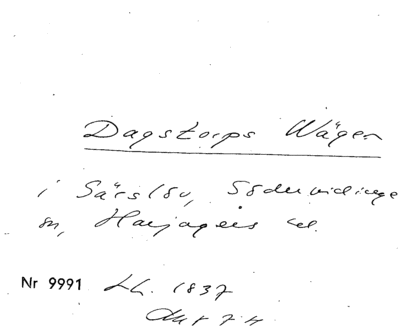 Dagstorps Wägen
i Särslöv, Södervidinge
sn, Harjagers hd.
Nr 9991 Lh. 1837
Akt 74